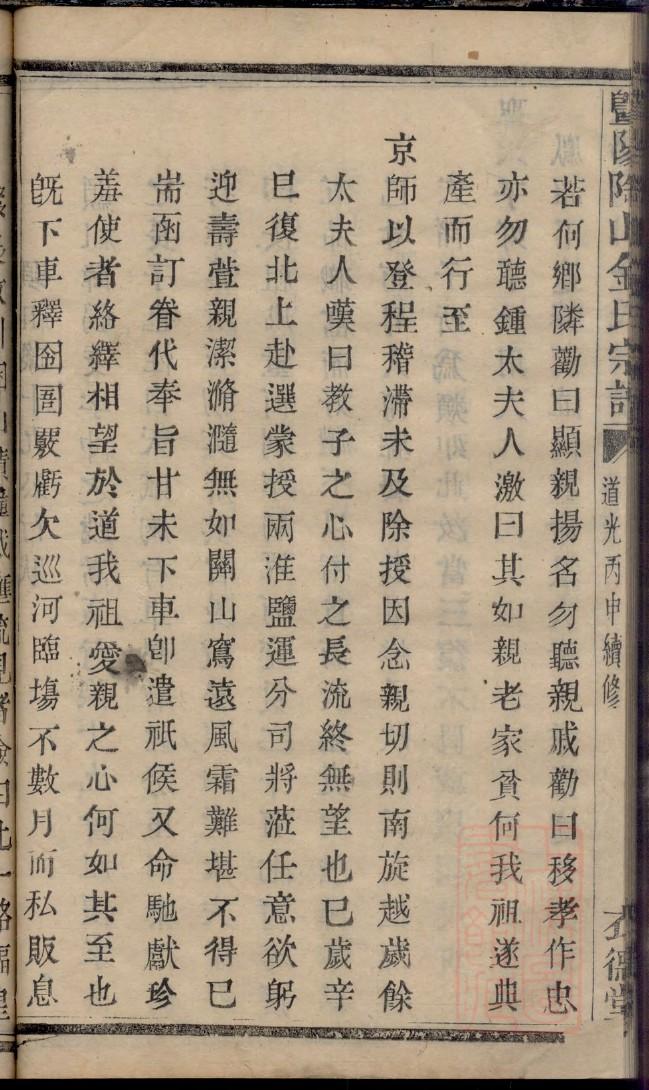 暨陽陶山金氏宗譜 道光丙申續修
若何鄉隣勸曰顯親揚名勿聽親戚勸曰移孝作忠
亦勿聽鍾太夫人激曰其如親老家貧何我祖遂典
產而行至
京師以登程稽滯未及除授因念親切則南旋越歲餘
太夫人嘆曰教子之心付之長流終無望也巳歲辛
巳復北上赴選蒙授兩淮鹽運分司將蒞任意欲躬
迎壽萱親潔滫瀡無如關山窵遠風霜難堪不得巳
耑函訂眷代奉旨甘未下車卽遣祇候又命馳獻珍
羞使者絡繹相望於道我祖愛親之心何如其至也
旣下車釋囹圄覈虧欠巡河臨塲不數月而私販息